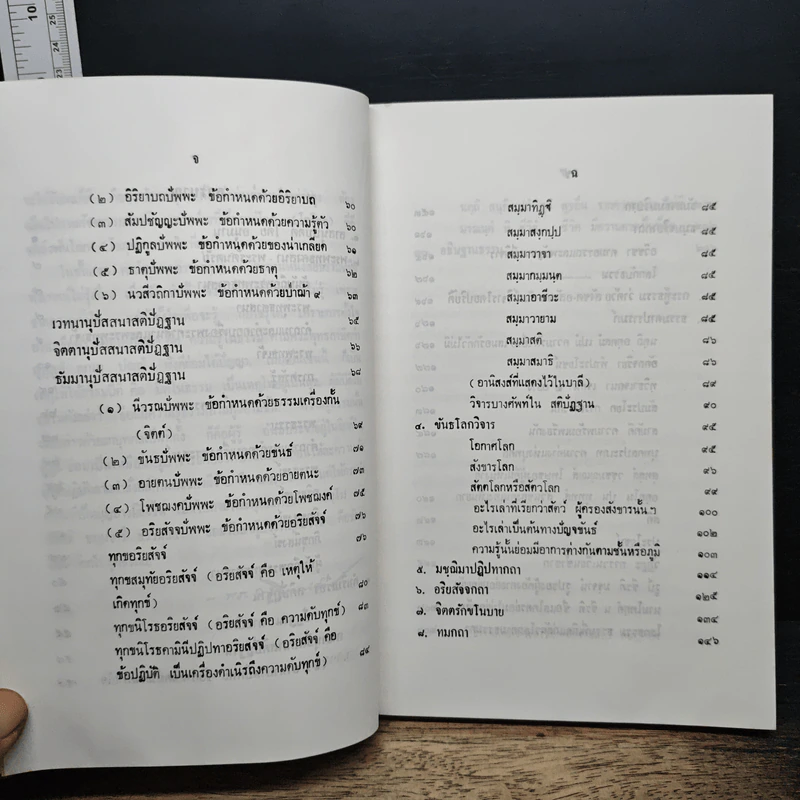 10
25
24
23
จ
(๒) อิริยาบถบัพพะ ข้อกำหนดด้วยอิริยาบถ ๖๐
(๓) สัมปชัญญะบัพพะ ข้อกำหนดด้วยความรู้ตัว ๖๐
(๔) ปฏิกูลบัพพะ ข้อกำหนดด้วยของน่าเกลียด ๖๑
(๕) ธาตุบัพพะ ข้อกำหนดด้วยธาตุ ๖๒
(๖) นวสีวถิกาบัพพะ ข้อกำหนดด้วยป่าช้า ๙ ๖๓
เวทนานุปัสสนาสติปัฏฐาน ๖๕
จิตตานุปัสสนาสติปัฏฐาน ๖๖
ธัมมานุปัสสนาสติปัฏฐาน ๖๘
(๑) นีวรณบัพพะ ข้อกำหนดด้วยธรรมเครื่องกั้น
(จิตต์) ๖๙
(๒) ขันธบัพพะ ข้อกำหนดด้วยขันธ์ ๗๑
(๓) อายตนบัพพะ ข้อกำหนดด้วยอายตนะ ๗๓
(๔) โพชฌงคบัพพะ ข้อกำหนดด้วยโพชฌงค์ ๗๕
(๕) อริยสัจจบัพพะ ข้อกำหนดด้วยอริยสัจจ์ ๗๖
ทุกขอริยสัจจ์ ๗๖
ทุกขสมุทัยอริยสัจจ์ (อริยสัจจ์ คือ เหตุให้
เกิดทุกข์) ๘๐
ทุกขนิโรธอริยสัจจ์ (อริยสัจจ์ คือ ความดับทุกข์) ๘๓
ทุกขนิโรธคามินีปฏิปทาอริยสัจจ์ (อริยสัจจ์ คือ
ข้อปฏิบัติ เป็นเครื่องดำเนิรถึงความดับทุกข์) ๘๔
ฉ
สมฺมาทิฏฺฐิ ๘๕
สมฺมาสงฺกปฺป ๘๕
สมฺมาวาจา ๘๕
สมฺมากมฺมนฺต ๘๕
สมฺมาอาชีวะ ๘๕
สมฺมาวายาม ๘๕
สมฺมาสติ ๘๖
สมฺมาสมาธิ ๘๖
(อานิสงส์ที่แสดงไว้ในบาลี) ๘๙
วิจารบางศัพท์ใน สติปัฏฐาน ๙๐
๔. ขันธโลกวิจาร ๙๕
โอกาศโลก ๙๕
สังขารโลก ๙๖
สัตตโลกหรือสัตวโลก ๙๙
อะไรเล่าที่เรียกว่าสัตว์ ผู้ครองสังขารนั้น ๆ ๑๐๐
อะไรเล่าเป็นต้นทางปัญจขันธ์ ๑๐๒
ความรู้นั้นย่อมมีอาการต่างกันตามชั้นหรือภูมิ ๑๐๓
๕. มชฺฌิมาปฏิปทากถา ๑๑๔
๖. อริยสัจจกถา ๑๒๕
๗. จิตตรักขโนบาย ๑๓๔
๘. ทมกถา ๑๔๖